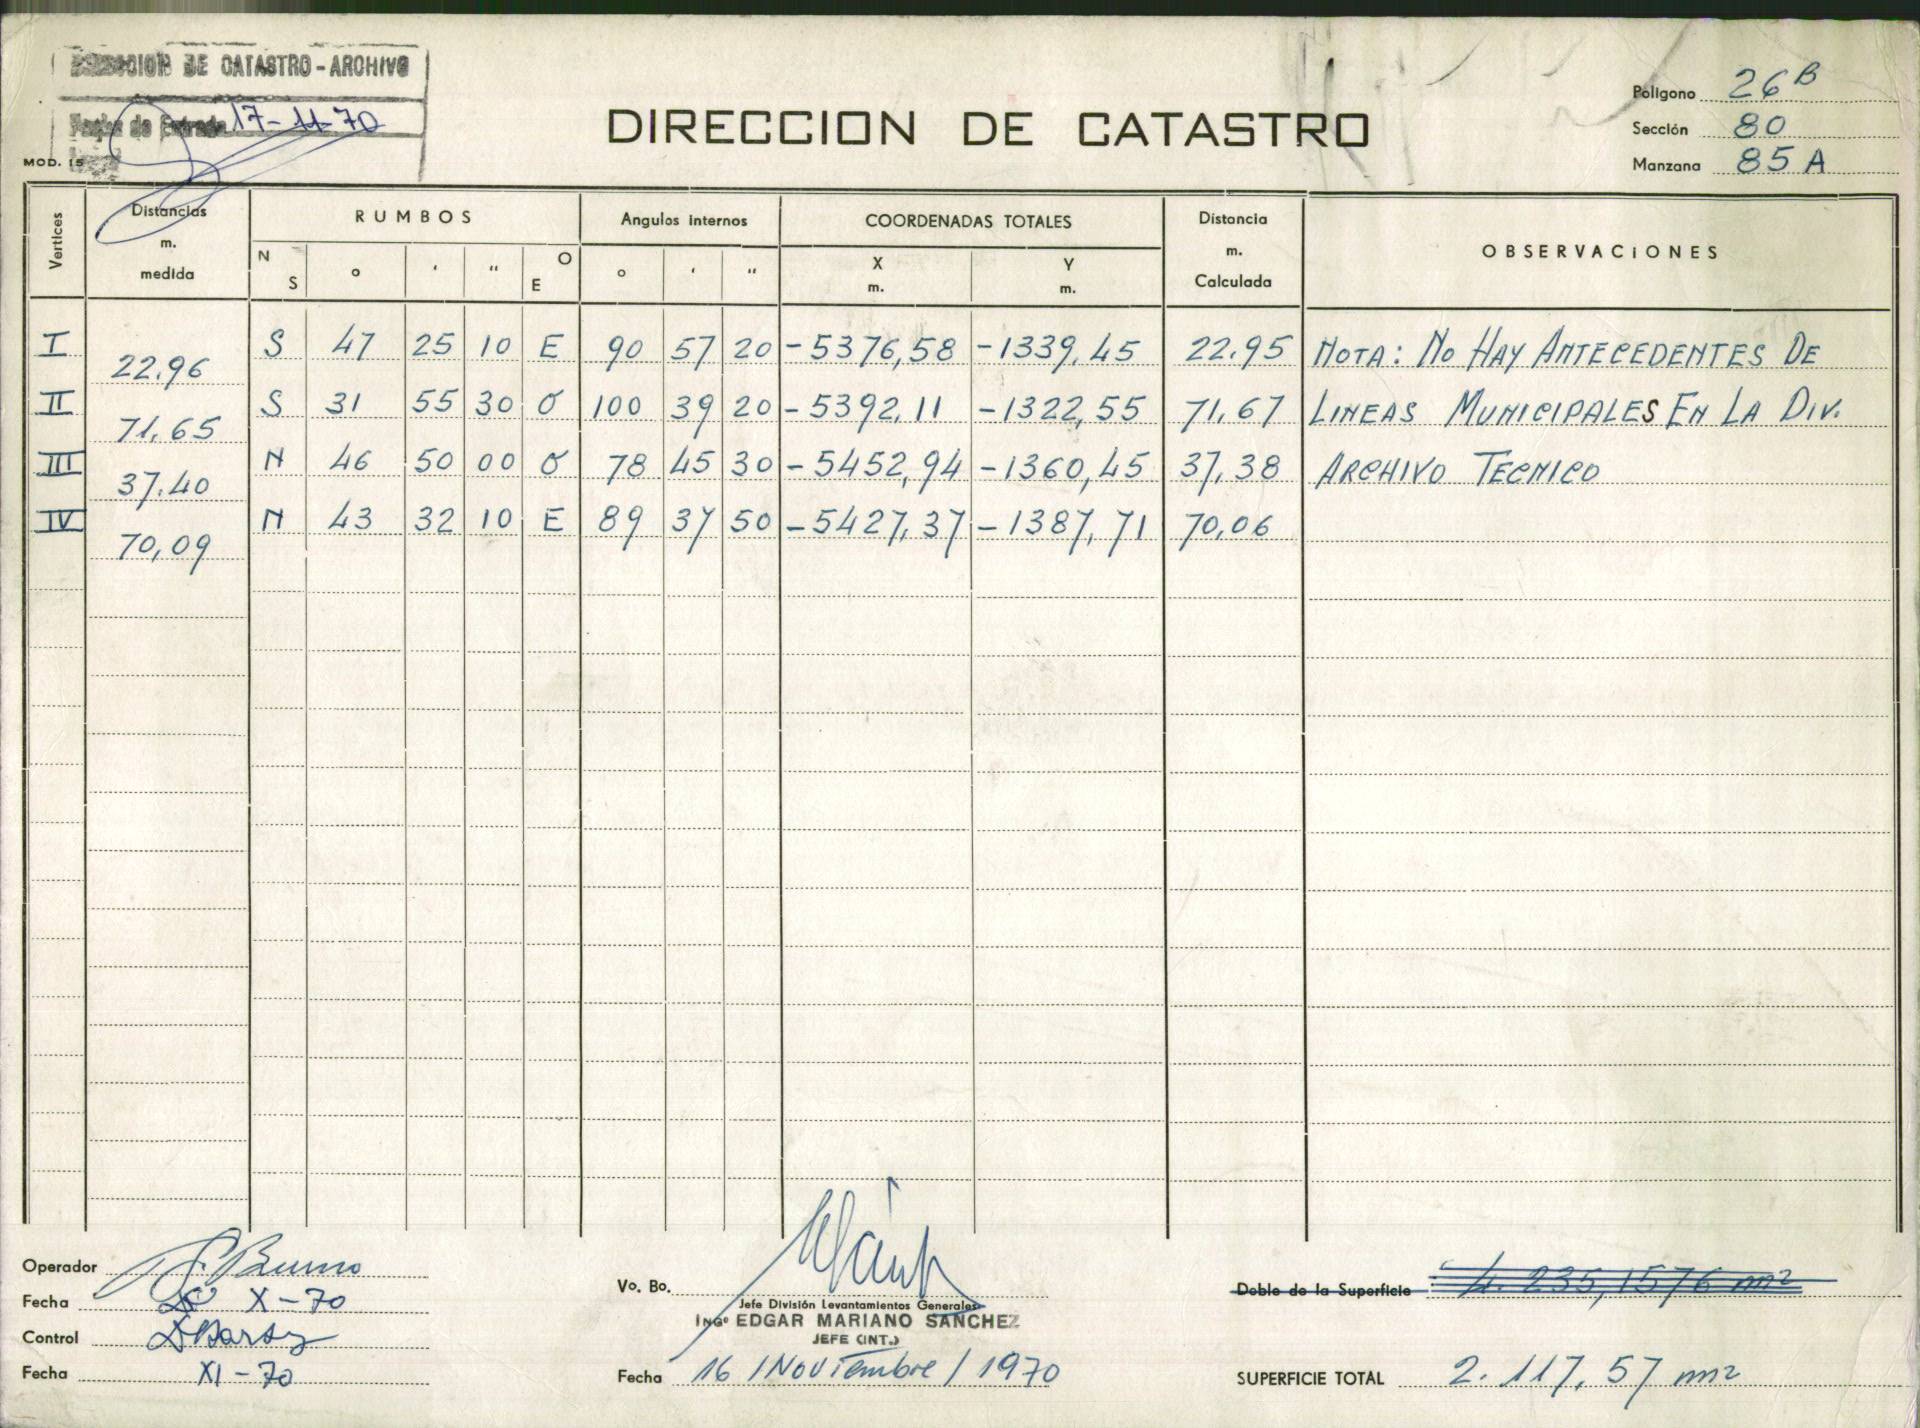 DIRECCION DE CATASTRO - ARCHIVO
Fecha de Entrada 17-11-70
MOD. 15
DIRECCION DE CATASTRO
Polígono 26 B
Sección 80
Manzana 85 A
Vertices | Distancias m. medida | RUMBOS | Angulos internos | COORDENADAS TOTALES | Distancia m. Calculada | OBSERVACiONES
N S | o | ‘ | “ | O E | o | ‘ | “ | X m. | Y m.
I | S | 47 | 25 | 10 | E | 90 | 57 | 20 | -5376,58 | -1339,45 | 22.95 | NOTA: NO HAY ANTECEDENTES DE
22.96
II | S | 31 | 55 | 30 | O | 100 | 39 | 20 | -5392,11 | -1322,55 | 71,67 | LINEAS MUNICIPALES EN LA DIV.
71,65
III | N | 46 | 50 | 00 | O | 78 | 45 | 30 | -5452,94 | -1360,45 | 37,38 | ARCHIVO TECNICO
37.40
IV | N | 43 | 32 | 10 | E | 89 | 37 | 50 | -5427,37 | -1387,71 | 70,06
70,09
Operador
Fecha X-70
Control
Fecha XI-70
Vo. Bo.
Jefe División Levantamientos Generales
INGº EDGAR MARIANO SANCHEZ
JEFE (INT.)
Fecha 16 / Noviembre / 1970
Doble de la Superficie 4. 235,1576 m2
SUPERFICIE TOTAL 2. 117, 57 m2